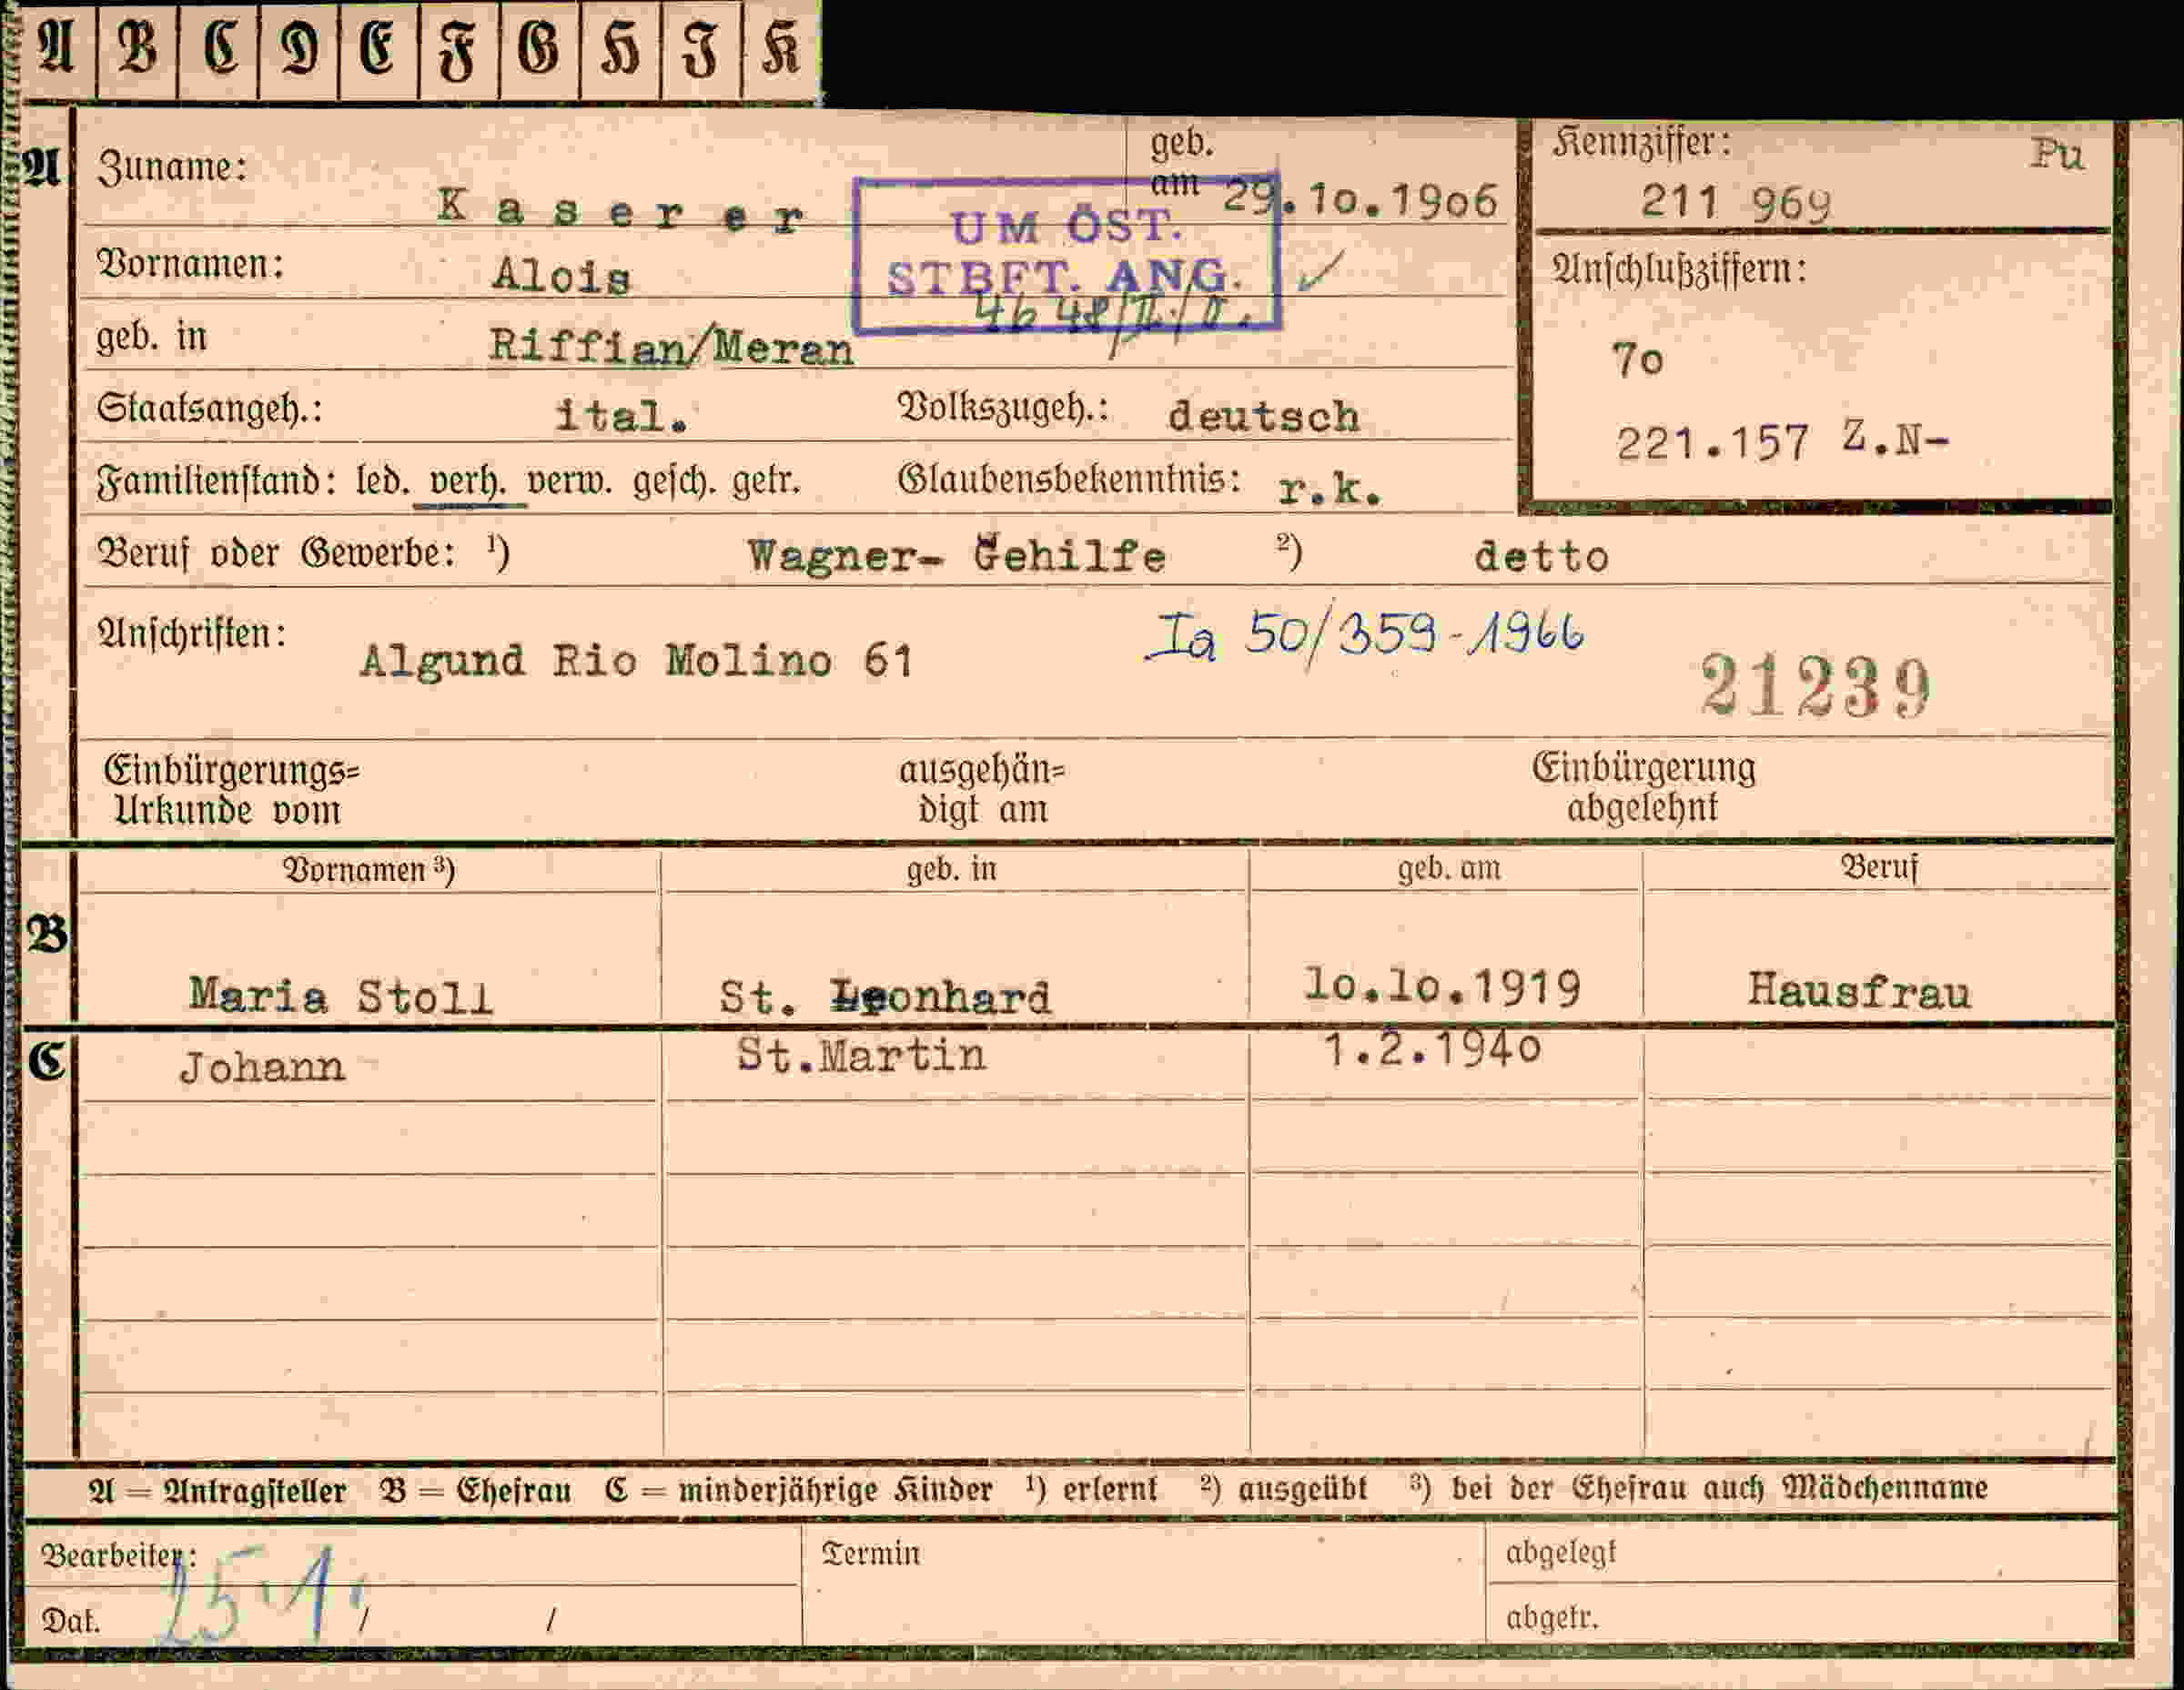 A B C D E F G H I K
A Zuname: K a s e r e r geb. am 29.10.1906
Kennziffer: Pu
211 969
UM ÖST.
STBFT. ANG.
Vornamen: Alois
Anschlußziffern:
geb. in Riffian/Meran
70
Staatsangeh.: ital. Volkszugeh.: deutsch
221.157 Z.N-
Familienstand: led. verh. verw. gesch. getr. Glaubensbekenntnis: r.k.
Beruf oder Gewerbe: ¹) Wagner- Gehilfe ²) detto
Anschriften: Algund Rio Molino 61
Ia 50/359-1966
21239
Einbürgerungs=
Urkunde vom
ausgehän=
digt am
Einbürgerung
abgelehnt
Vornamen ³) geb. in geb. am Beruf
B Maria Stoll St. Leonhard 10.10.1919 Hausfrau
C Johann St.Martin 1.2.1940
A = Antragsteller B = Ehefrau C = minderjährige Kinder ¹) erlernt ²) ausgeübt ³) bei der Ehefrau auch Mädchenname
Bearbeiter: Termin abgelegt
25.1.
Dat. / / abgetr.